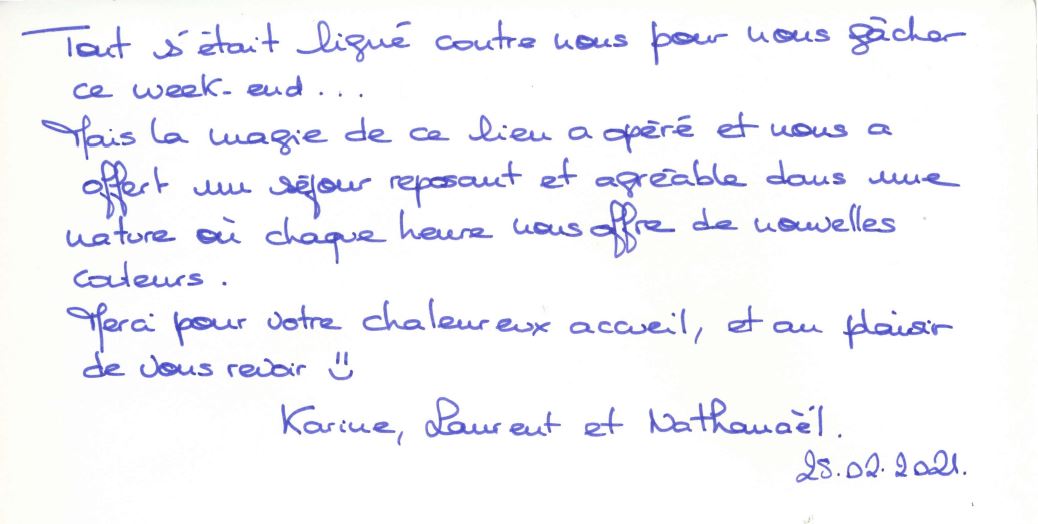 Tout s'était ligué contre nous pour nous gâcher
ce week-end...
Mais la magie de ce lieu a opéré et nous a
offert un séjour reposant et agréable dans une
nature où chaque heure nous offre de nouvelles
couleurs.
Merci pour votre chaleureux accueil, et au plaisir
de vous revoir
Karine, Laurent et Nathanaël.
28.02.2021.